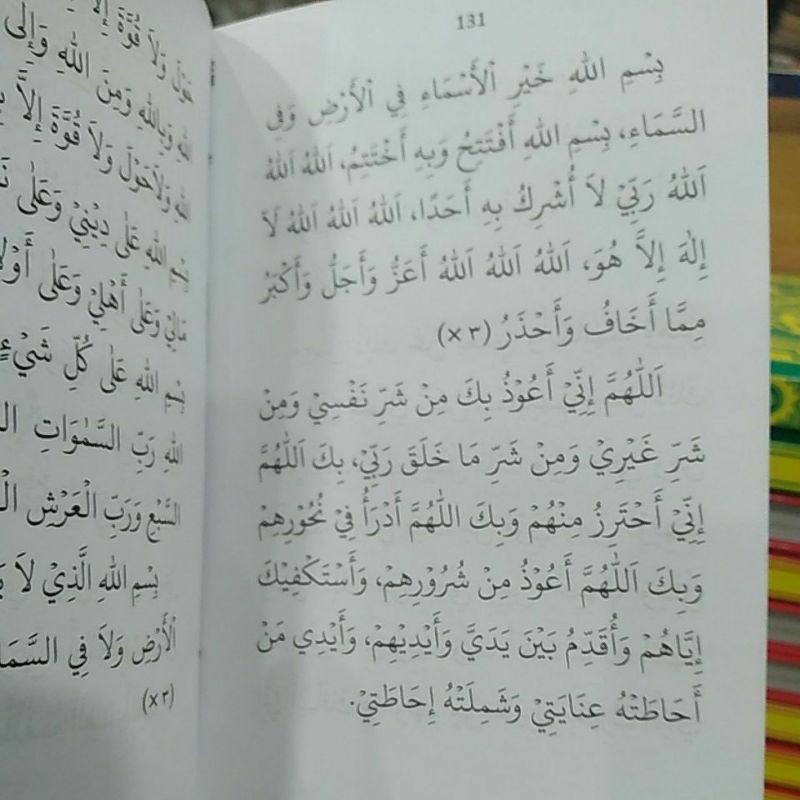 131
بِسْمِ اللهِ خَيْرِ الْأَسْمَاءِ فِي الْأَرْضِ وَفِي
السَّمَاءِ، بِسْمِ اللهِ أَفْتَتِحُ وَبِهِ أَخْتَتِمُ، اَللهُ اَللهُ
اَللهُ رَبِّيْ لَا أُشْرِكُ بِهِ أَحَدًا، اَللهُ اَللهُ اَللهُ لَا
إِلٰهَ إِلَّا هُوَ، اَللهُ اَللهُ اَللهُ أَعَزُّ وَأَجَلُّ وَأَكْبَرُ
مِمَّا أَخَافُ وَأَحْذَرُ (٣ ×)
اَللّٰهُمَّ إِنِّيْ أَعُوْذُ بِكَ مِنْ شَرِّ نَفْسِيْ وَمِنْ
شَرِّ غَيْرِيْ وَمِنْ شَرِّ مَا خَلَقَ رَبِّيْ، بِكَ اَللّٰهُمَّ
إِنِّيْ أَحْتَرِزُ مِنْهُمْ وَبِكَ اللّٰهُمَّ أَدْرَأُ فِيْ نُحُوْرِهِمْ
وَبِكَ اَللّٰهُمَّ أَعُوْذُ مِنْ شُرُوْرِهِمْ، وَأَسْتَكْفِيْكَ
إِيَّاهُمْ وَأُقَدِّمُ بَيْنَ يَدَيَّ وَأَيْدِيْهِمْ، وَأَيْدِي مَنْ
أَحَاطَتْهُ عِنَايَتِيْ وَشَمِلَتْهُ إِحَاطَتِيْ.
حَوْلَ وَلَا قُوَّةَ
اللهِ وَبِاللهِ وَمِنَ اللهِ وَإِلَى
اللهِ وَلَاحَوْلَ وَلَا قُوَّةَ إِلَّا
بِسْمِ اللهِ عَلَى دِيْنِيْ وَعَلَى
مَالِيْ وَعَلَى أَهْلِيْ وَعَلَى
بِسْمِ اللهِ عَلَى كُلِّ شَيْءٍ
اللهِ رَبِّ السَّمٰوَاتِ
السَّبْعِ وَرَبِّ الْعَرْشِ
بِسْمِ اللهِ الَّذِيْ لَا
الْأَرْضِ وَلَا فِي
(٣ ×)